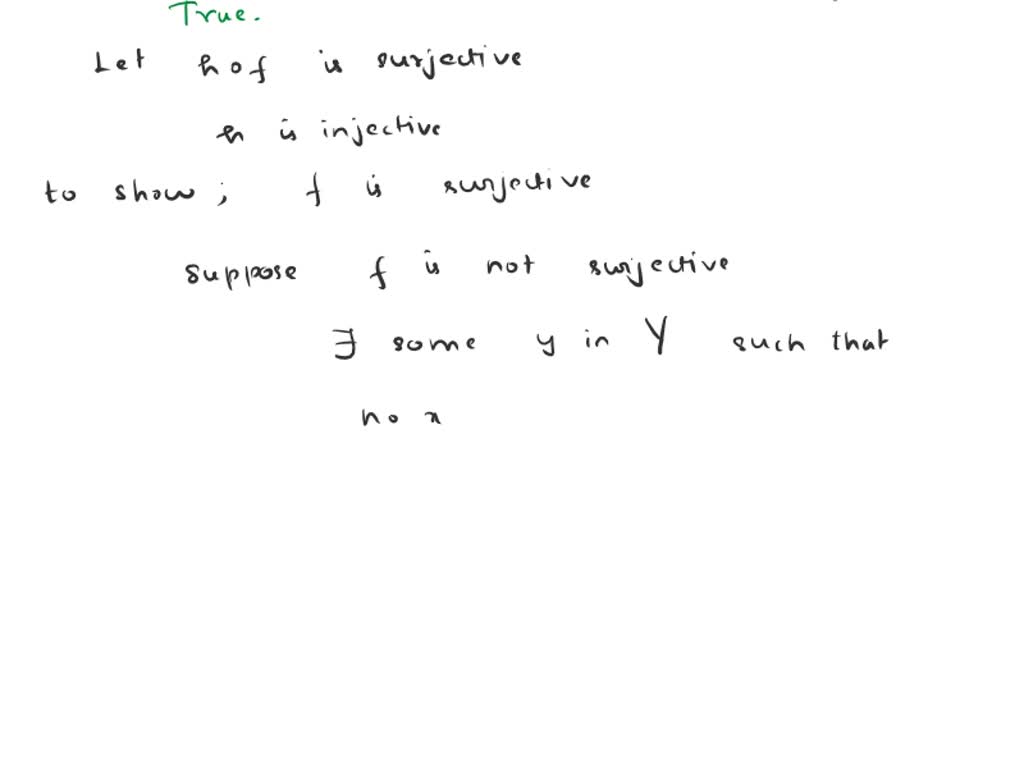 True.
Let hof is surjective
h is injective
to show ; f is surjective
suppose f is not surjective
∃ some y in Y such that
no x